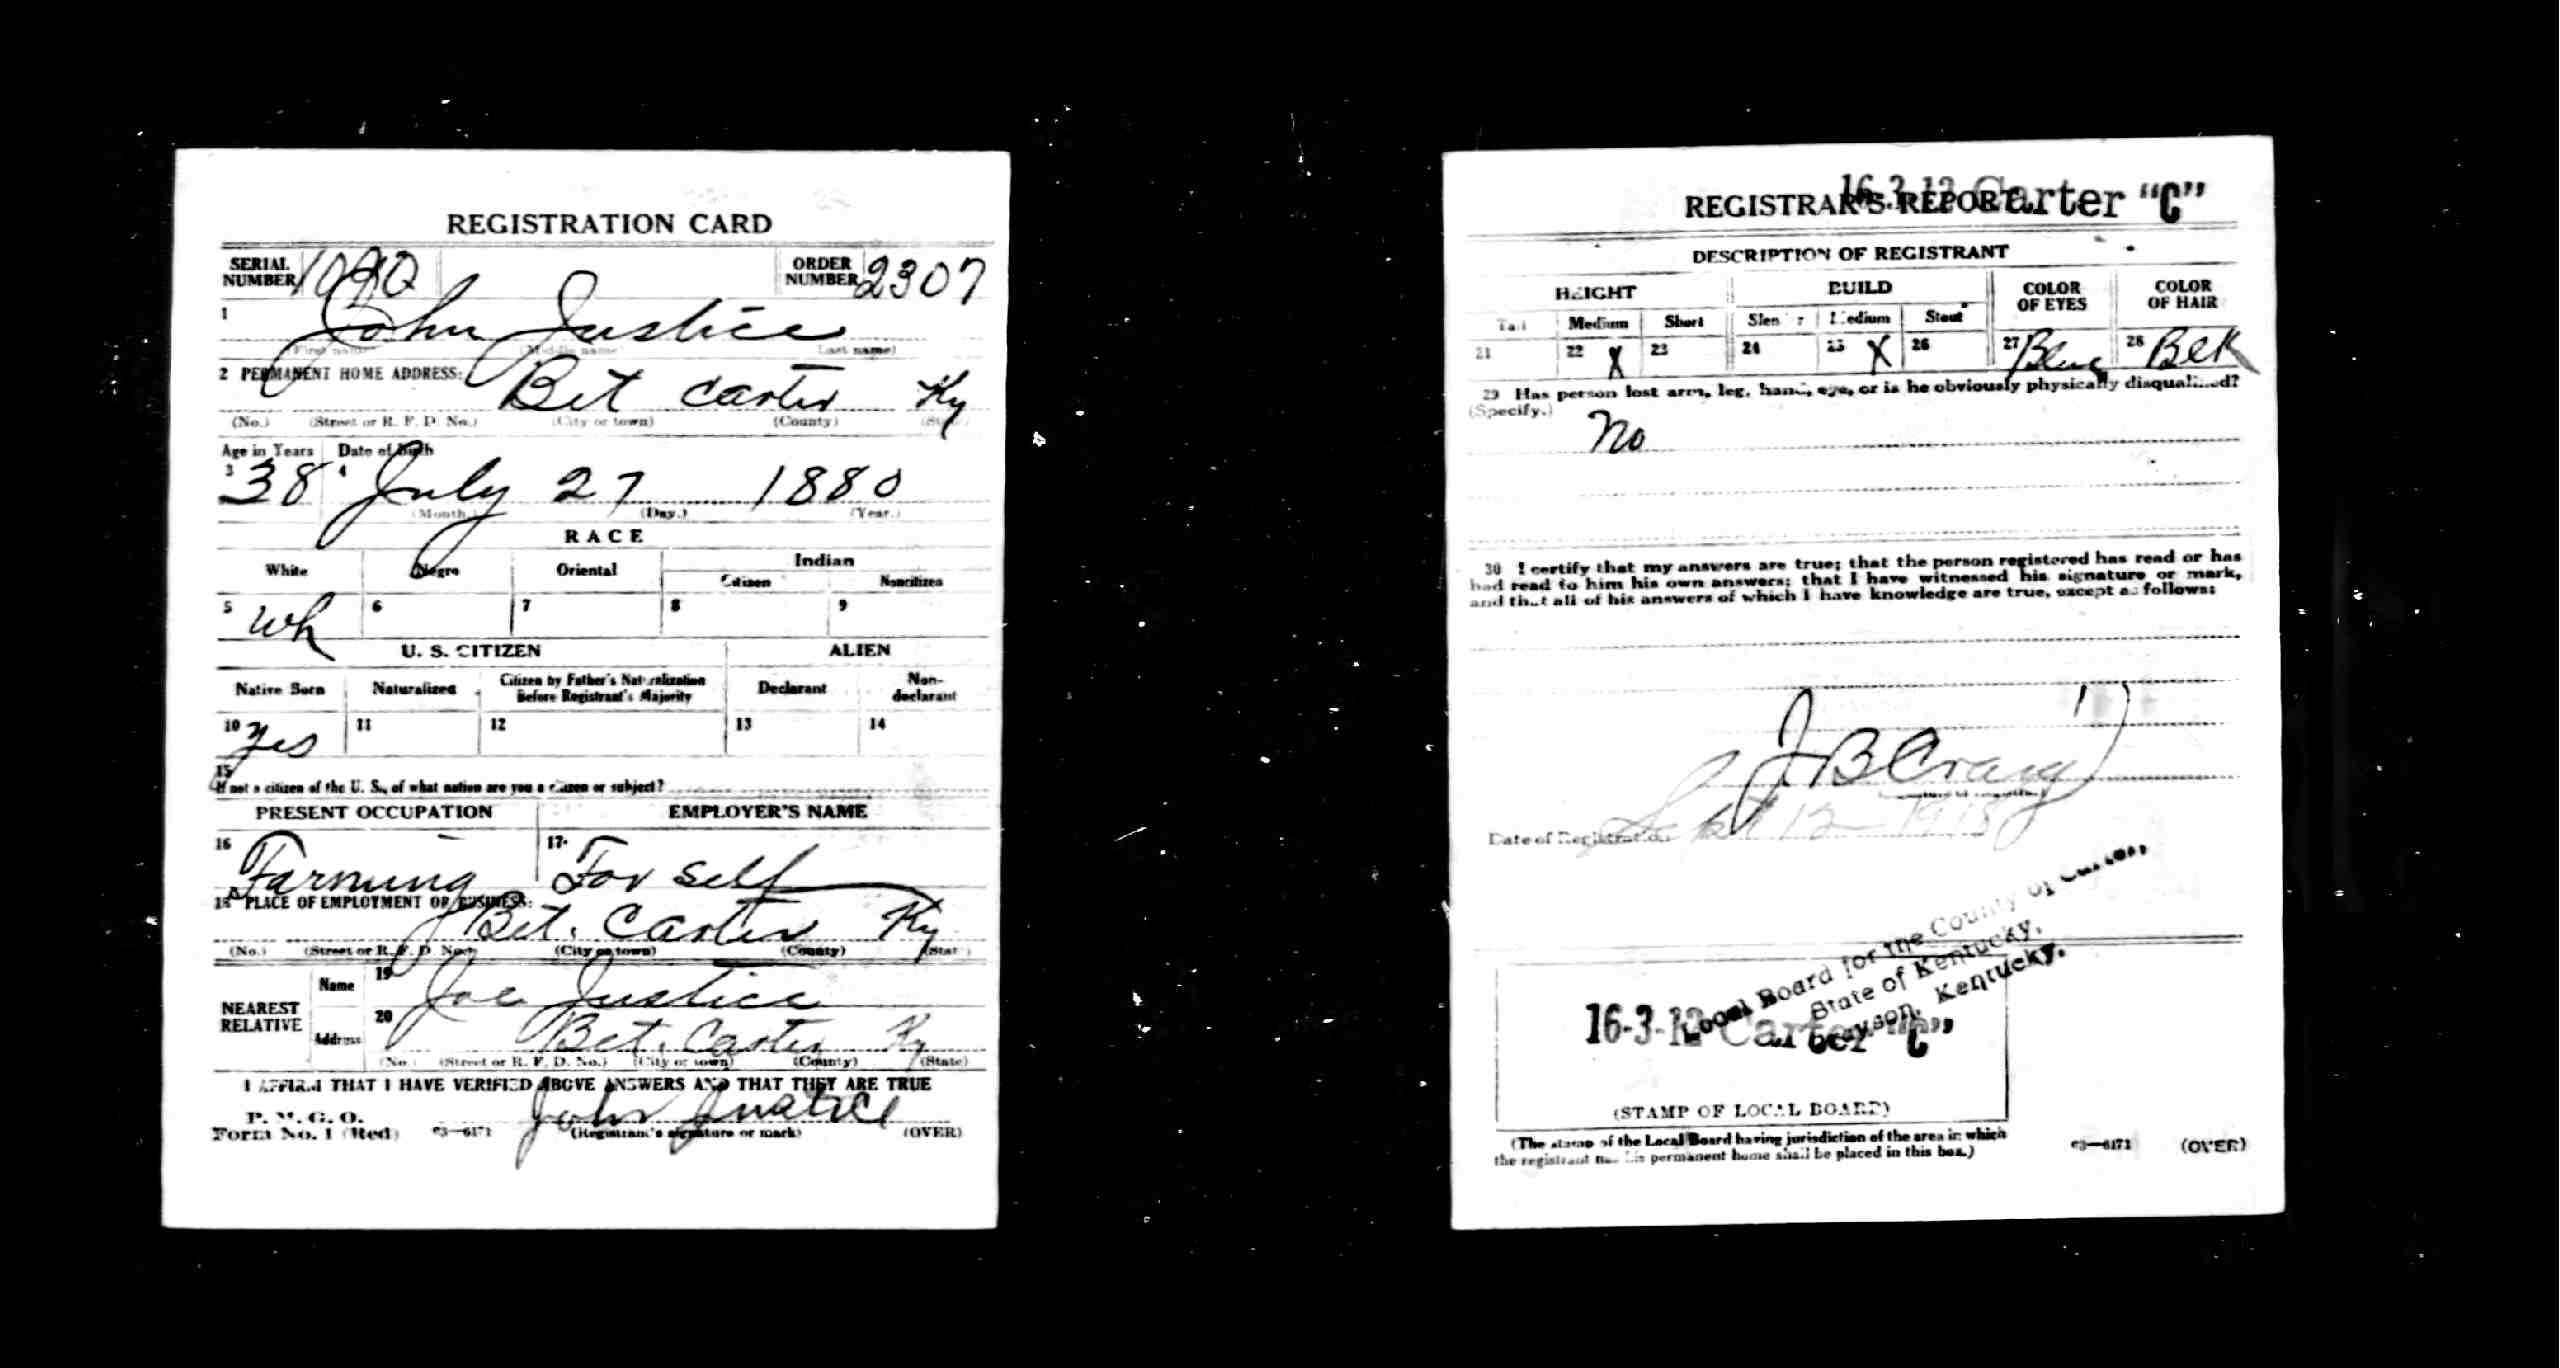 REGISTRATION CARD
SERIAL NUMBER ORDER NUMBER 2307
1 John Justice
(First name) (Middle name) Last name)
2 PERMANENT HOME ADDRESS: Bet Carter Ky
(No.) (Street or R. F. D. No.) (City or town) (County) (State)
Age in Years Date of Birth
3 38 4 July 27 1880
(Month.) (Day.) (Year.)
RACE
White Negro Oriental Indian
Citizen Noncitizen
5 Wh 6 7 8 9
U. S. CITIZEN ALIEN
Native Born Naturalized Citizen by Father's Naturalization Before Registrant's Majority Declarant Non-declarant
10 Yes 11 12 13 14
15
If not a citizen of the U. S., of what nation are you a citizen or subject?
PRESENT OCCUPATION EMPLOYER'S NAME
16 Farming 17 For Self
18 PLACE OF EMPLOYMENT OR BUSINESS:
Bet. Carter Ky
(No.) (Street or R. F. D. No.) (City or town) (County) (State)
NEAREST RELATIVE
Name 19 Joe Justice
Address 20 Bet. Carter Ky
(No.) (Street or R. F. D. No.) (City or town) (County) (State)
I AFFIRM THAT I HAVE VERIFIED ABOVE ANSWERS AND THAT THEY ARE TRUE
P. M. G. O.
Form No. 1 (Red) 03—6171 John Justice
(Registrant's signature or mark) (OVER)
16-3-12 Carter "C"
REGISTRAR'S REPORT
DESCRIPTION OF REGISTRANT
HEIGHT BUILD COLOR OF EYES COLOR OF HAIR
Tall Medium Short Slender Medium Stout
21 22 X 23 24 25 X 26 27 Blue 28 Blk
29 Has person lost arm, leg, hand, eye, or is he obviously physically disqualified?
(Specify.)
No
30 I certify that my answers are true; that the person registered has read or has
had read to him his own answers; that I have witnessed his signature or mark,
and that all of his answers of which I have knowledge are true, except as follows:
J B Craig
Date of Registration Sept 12 1918
Local Board for the County of Carter,
State of Kentucky,
Grayson, Kentucky.
16-3-12 Carter "C"
(STAMP OF LOCAL BOARD)
(The stamp of the Local Board having jurisdiction of the area in which
the registrant has his permanent home shall be placed in this box.)
03—6171 (OVER)